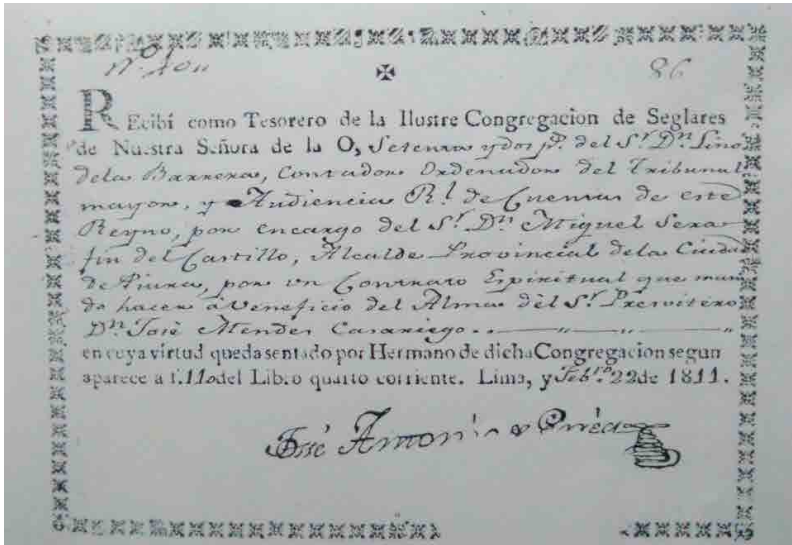 86
✠
REcibí como Tesorero de la Ilustre Congregacion de Seglares
de Nuestra Señora de la O, Setenta y dos ps. del Sr. Dn. Lino
dela Barrera, Contador Ordenador del Tribunal
mayor, y Audiencia Rl. de Cuentas de este
Reyno, por encargo del Sr. Dn. Miguel Sera
fin del Castillo, Alcalde Provincial dela Ciudad
de Piura, por un Contrato Espiritual que man
do hacer á veneficio del Alma del Sr. Presvitero
Dn. José Mendez Casariego
en cuya virtud queda sentado por Hermano de dicha Congregacion segun
aparece a f. 110 del Libro quarto corriente. Lima, y Febro. 22 de 1811.
José Antonio